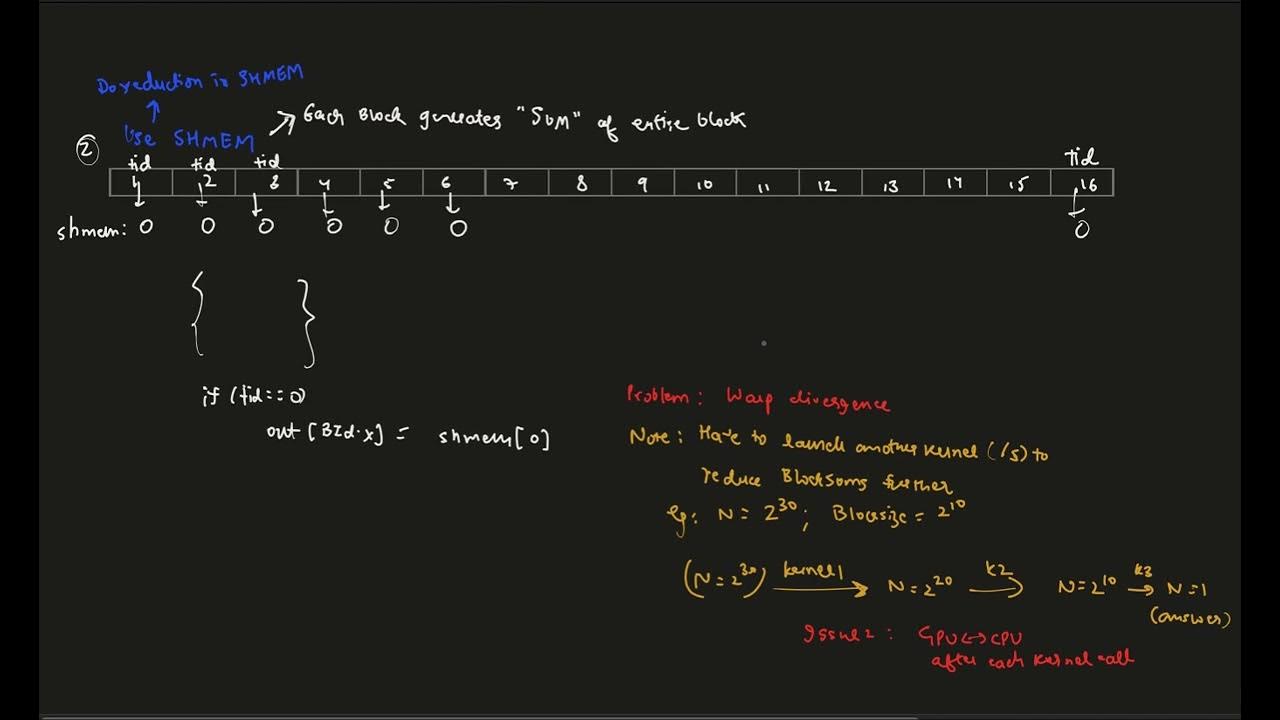 Do reduction in SHMEM
Use SHMEM
Each Block generates "SUM" of entire block
2
tid tid tid tid
1 2 3 4 5 6 7 8 9 10 11 12 13 14 15 16
shmem: 0 0 0 0 0 0 0
{ }
if (tid==0)
out [BId.x] = shmem[0]
Problem: Warp divergence
Note: Have to launch another kernel (/s) to
reduce Blocksums further
Eg: N = 2^30; Blocksize = 2^10
(N=2^30) kernel1 → N=2^20 k2 → N=2^10 k3 → N=1
(answer)
Issue 2: GPU↔CPU
after each kernel call